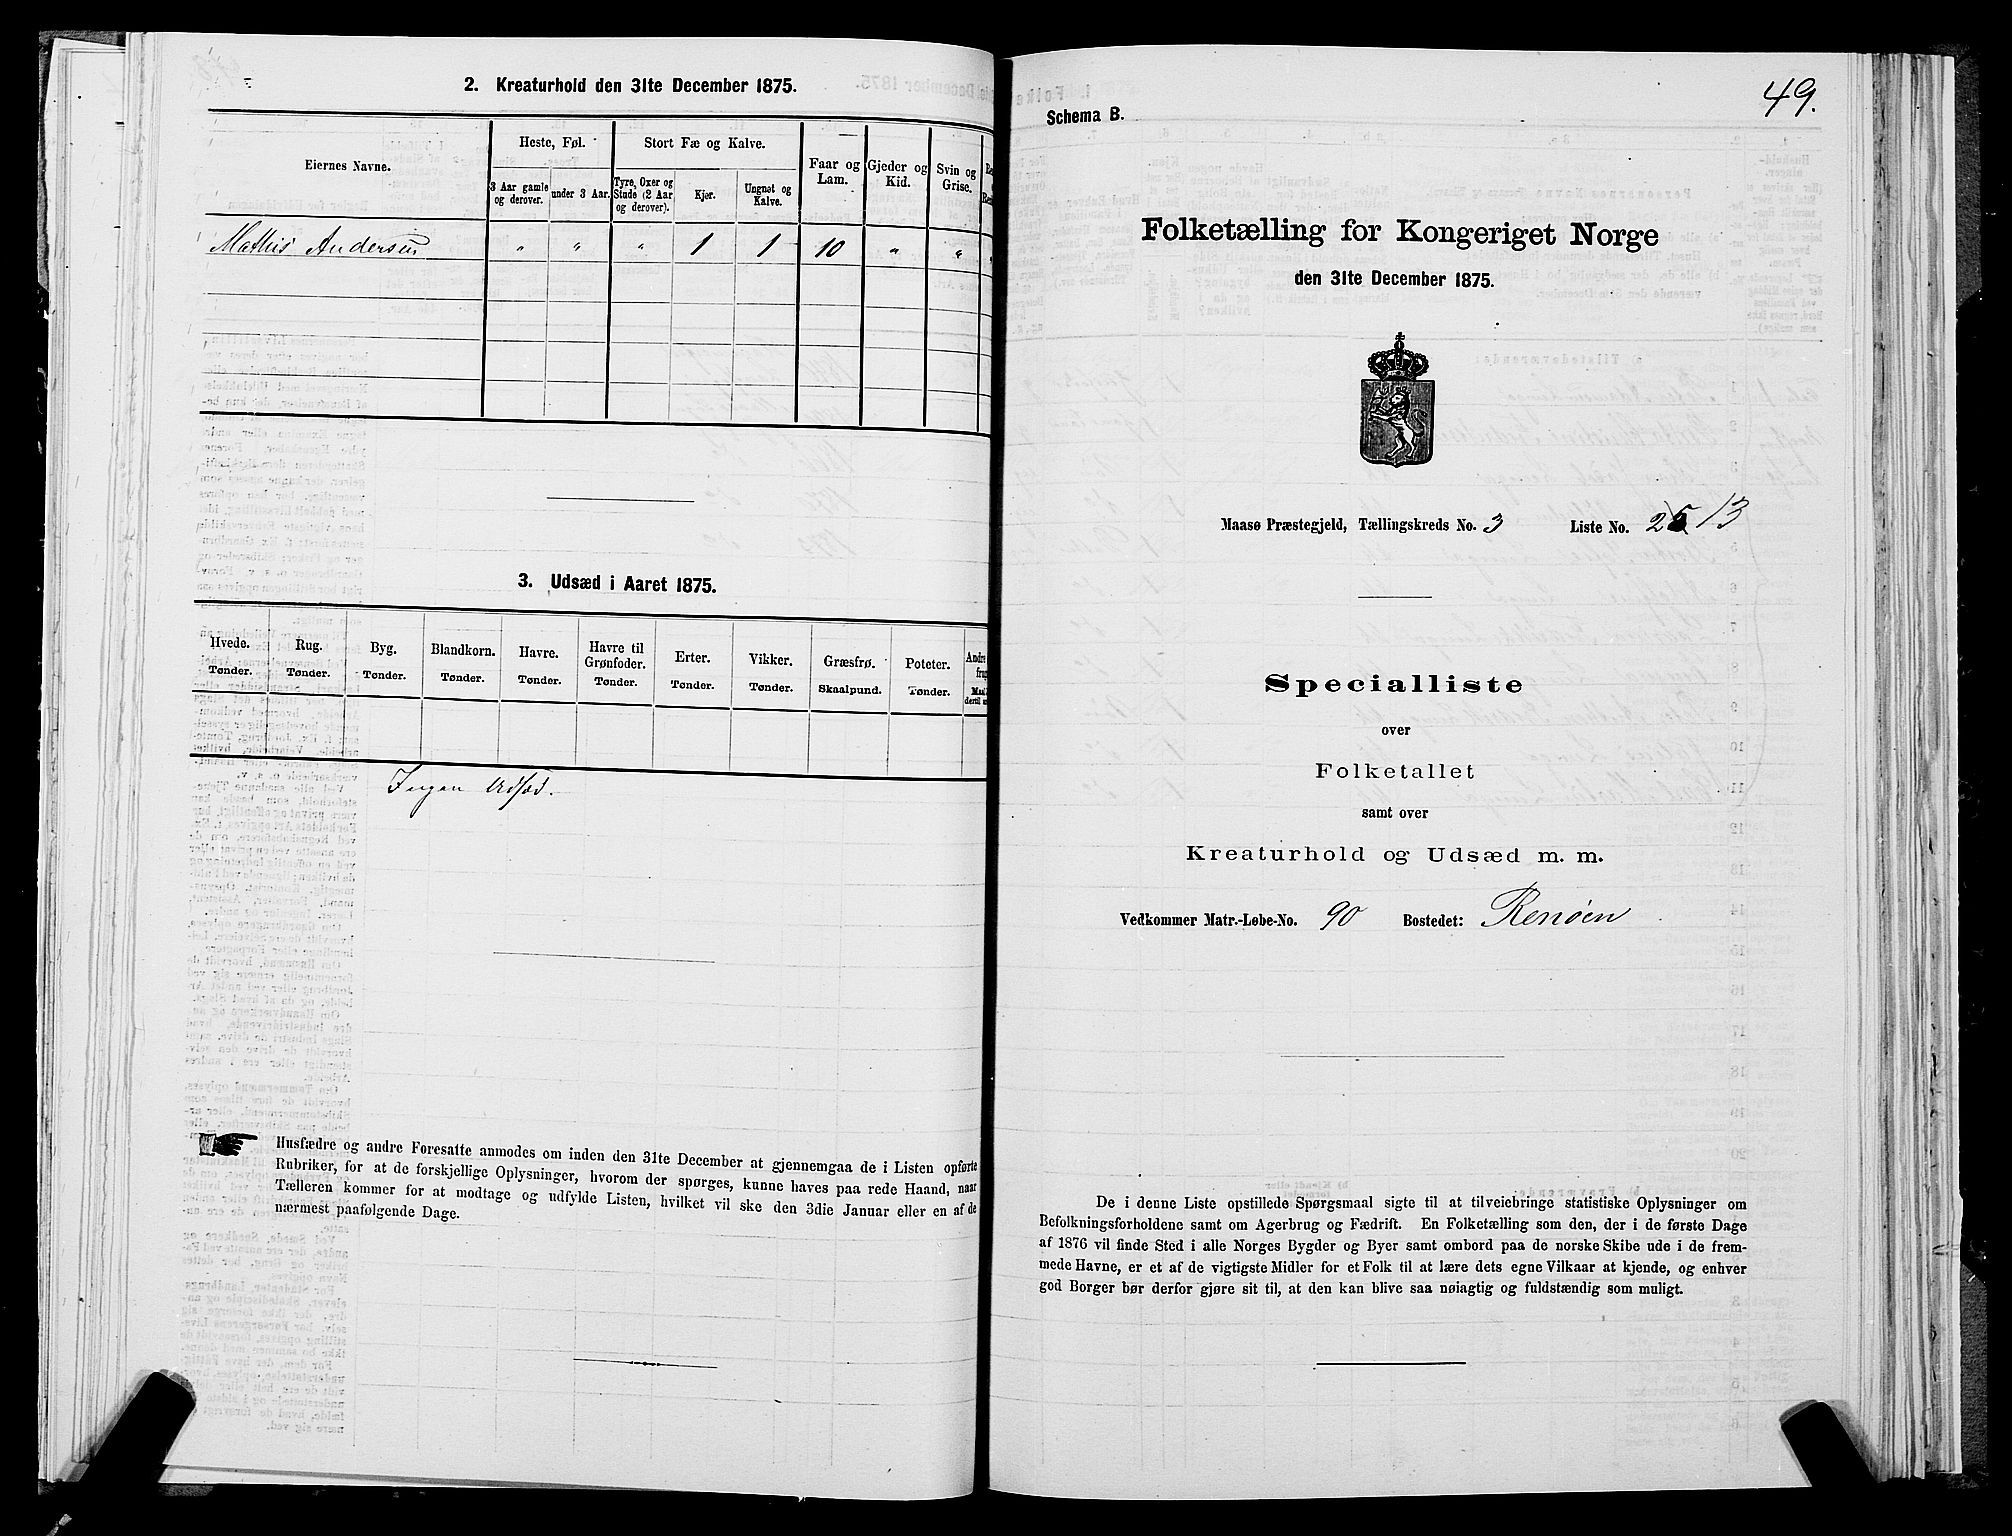 2. Kreaturhold den 31te December 1875.
Eiernes Navne.
Heste, Føl.
Stort Fæ og Kalve.
Faar og Lam.
Gjeder og Kid.
Svin og Grise.
3 Aar gamle og derover.
under 3 Aar.
Tyre, Oxer og Stude (2 Aar og derover).
Kjør.
Ungnøt og Kalve.
Mathis Andersen " " " 1 1 10 " " "
3. Udsæd i Aaret 1875.
Hvede. Rug. Byg. Blandkorn. Havre. Havre til Grønfoder. Erter. Vikker. Græsfrø. Poteter. Andre
Tønder. Tønder. Tønder. Tønder. Tønder. Tønder. Tønder. Tønder. Skaalpund. Tønder.
Ingen Udsæd.
Husfædre og andre Foresatte anmodes om inden den 31te December at gjennemgaa de i Listen opførte
Rubriker, for at de forskjellige Oplysninger, hvorom der spørges, kunne haves paa rede Haand, naar
Tælleren kommer for at modtage og udfylde Listen, hvilket vil ske den 3die Januar eller en af de
nærmest paafølgende Dage.
49.
Schema B.
Folketælling for Kongeriget Norge
den 31te December 1875.
Maasø Præstegjeld, Tællingskreds No. 3 Liste No. 25 13
Specialliste
over
Folketallet
samt over
Kreaturhold og Udsæd m. m.
Vedkommer Matr.-Løbe-No. 90 Bostedet: Renøen
De i denne Liste opstillede Spørgsmaal sigte til at tilveiebringe statistiske Oplysninger om
Befolkningsforholdene samt om Agerbrug og Fædrift. En Folketælling som den, der i de første Dage
af 1876 vil finde Sted i alle Norges Bygder og Byer samt ombord paa de norske Skibe ude i de frem-
mede Havne, er et af de vigtigste Midler for et Folk til at lære dets egne Vilkaar at kjende, og enhver
god Borger bør derfor gjøre sit til, at den kan blive saa nøiagtig og fuldstændig som muligt.